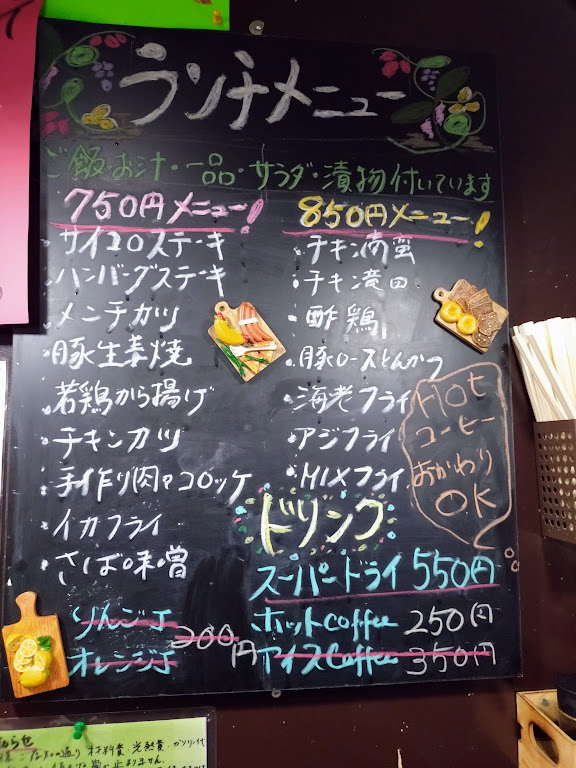 ランチメニュー
ご飯・お汁・一品・サラダ・漬物付いています
750円メニュー!
・サイコロステーキ
・ハンバーグステーキ
・メンチカツ
・豚生姜焼
・若鶏から揚げ
・チキンカツ
・手作り肉コロッケ
・イカフライ
・さば味噌
りんごJ
オレンジJ
200円
850円メニュー!
・チキン南蛮
・チキン竜田
・酢鶏
・豚ロースとんかつ
・海老フライ
・アジフライ
・MIXフライ
HOT
コーヒー
おかわり
OK
ドリンク
スーパードライ 550円
ホットcoffee 250円
アイスcoffee 350円
らせ
材料費、光熱費、ガソリン代